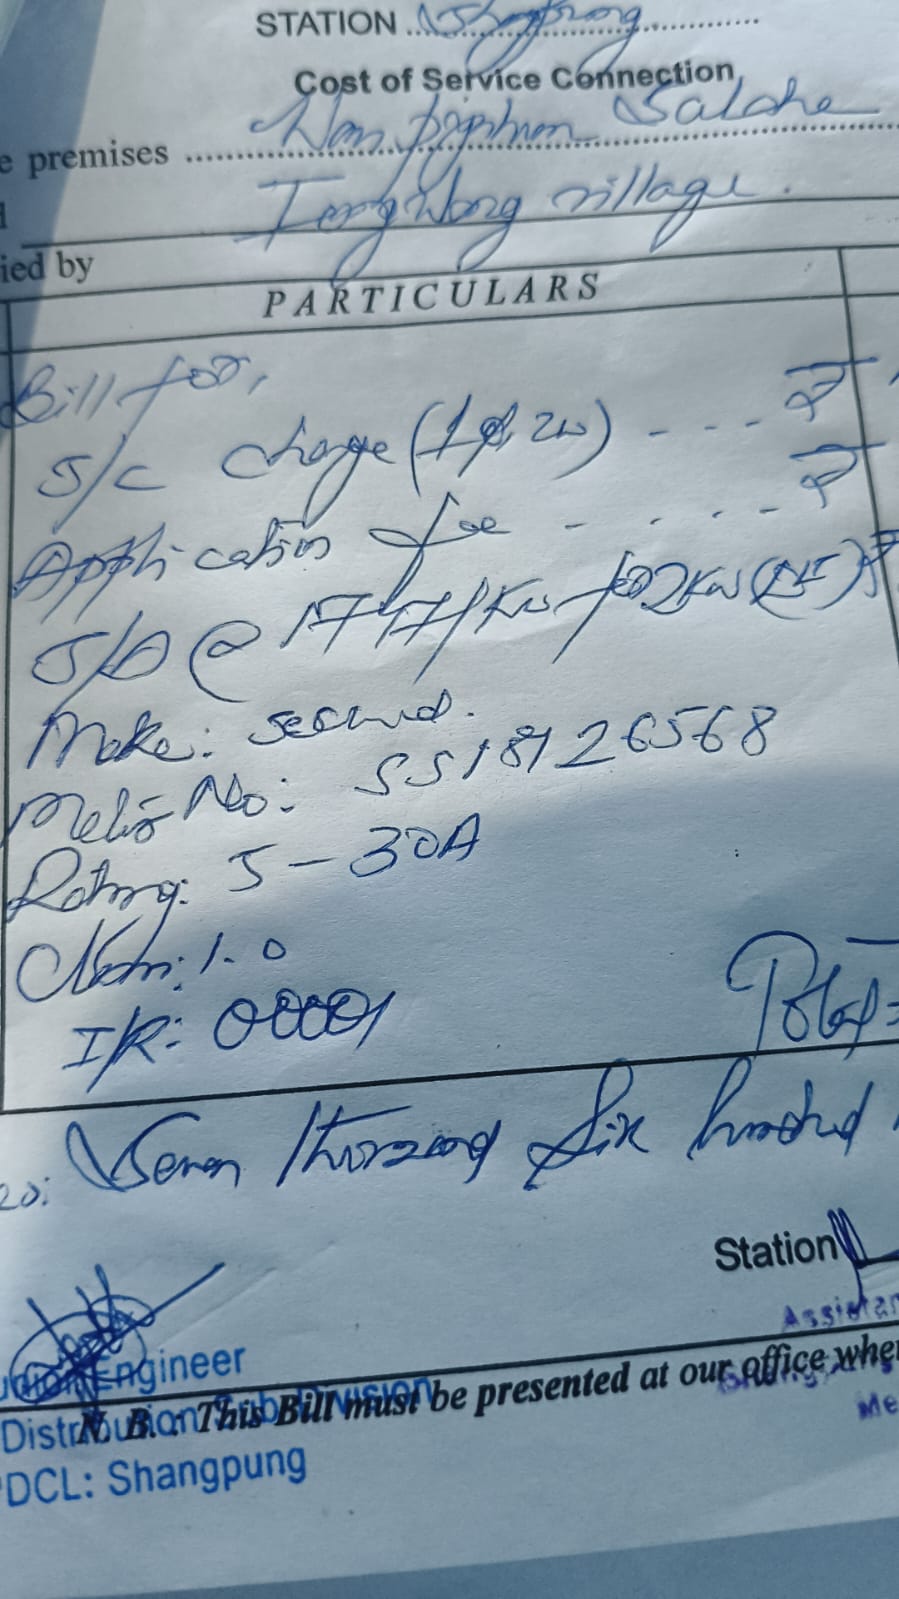 STATION Shangpung
Cost of Service Connection
e premises
village.
ied by
PARTICULARS
Bill for,
S/C charge (1φ, 2w) - - - - ₹
Application fee - - - - - ₹
S/D @ /KW for 2KW
Make: secured.
Meter No: SS18126568
Rating: 5-30A
1.0
I/R: 00001
Total =
Seven thousand Six hundred
Station
Assistan
Engineer
Distribution Sub Division
N. B. : This Bill must be presented at our office whe
Me
DCL: Shangpung